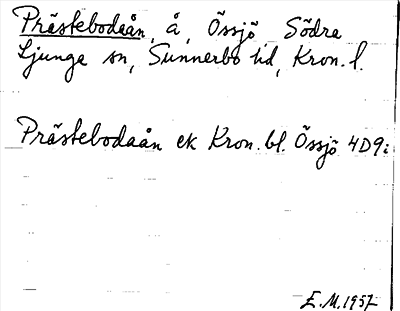 Prästebodaån, å, Össjö Södra
Ljunga sn, Sunnerbo hd, Kron. l.
Prästebodaån ek Kron. bl. Össjö 4D9:
E.M. 1957